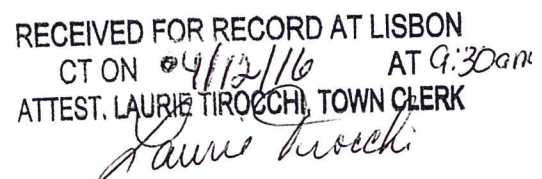 RECEIVED FOR RECORD AT LISBON
CT ON 04/12/16 AT 9:30am
ATTEST. LAURIE TIROCCHI, TOWN CLERK
Laurie Tirocchi